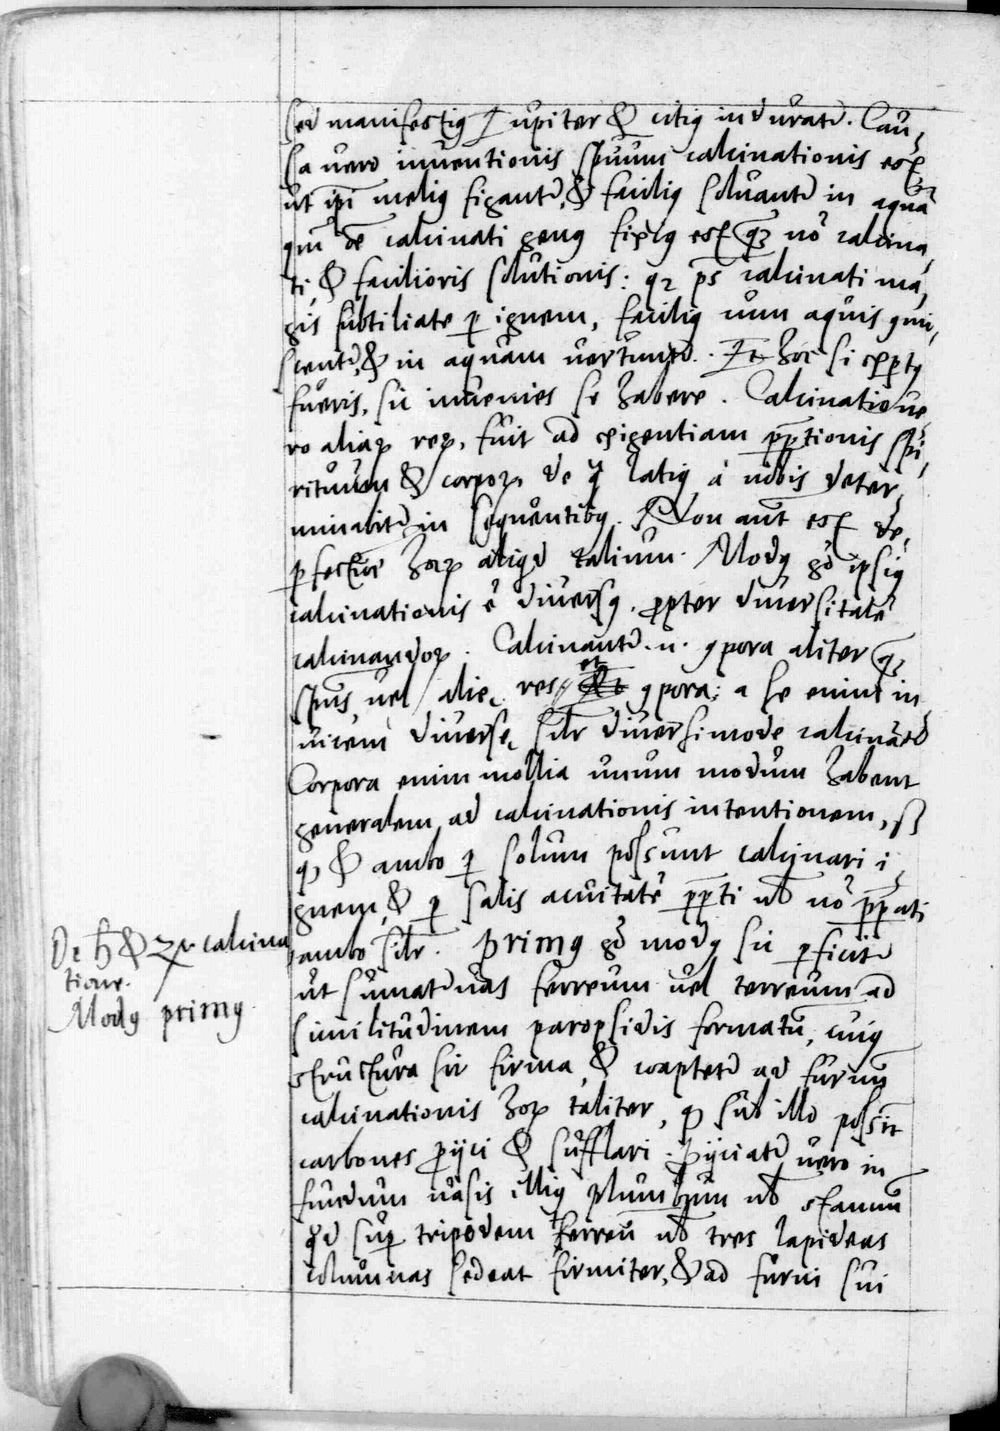 sed manifestiꝰ Iupiter & citiꝰ induratr̃. Cau,
sa vero inventionis spũum calcinationis est
ut ipĩ meliꝰ figantr̃, & faciliꝰ solvantr̃ in aquã
qm̃ õe calcinati genꝰ fixiꝰ est qȝ nõ calcina,
ti, & facilioris solutionis: qꝛ pſ̃ calcinati ma,
gis subtiliate ꝑ ignem, faciliꝰ cum aquis ꝯmi,
scentr̃, & in aquam vertuntr̃. Et hoc si expertꝰ
fueris, sic invenies se habere. Calcinatio ve,
ro aliaꝝ reꝝ, fuit ad exigentiam p̃p̃tionis spi,
rituum & corpoꝝ, de q̃ latiꝰ à nobis deter,
minabitr̃ in sequentibꝰ. Non aut̃ est de
ꝑfectiõe haꝝ aliqd talium. Modꝰ g̊ ipsiꝰ
calcinationis ẽ diversꝰ, ꝓpter diversitatẽ
calcinandoꝝ. Calcinantr̃.n. ꝯpora aliter qȝ
spũs, vel alię res, et ꝯpora: a se enim in,
vicem diversę, silr̃ diversimode calcinãtr̃
Corpora enim mollia unum modum habent
generalem ad calcinationis intentionem, sꝫ
ꝙ & ambo ꝑ solum possunt calcinari i,
gnem, & ꝑ salis acuitatẽ p̃p̃ti uł nõ p̃p̃ati
ambo silr̃. Primꝰ g̊ modꝰ sic ꝑficitr̃
ut sumatr̃ vas ferreum vel terreum ad
similitudinem paropsidis formatũ, cuiꝰ
structura sit firma, & coaptetr̃ ad furnũ
calcinationis hoꝝ taliter, ꝙ sub illo possit
carbones ꝓijci & sufflari. Ꝓijciatr̃ vero in
fundum vasis illiꝰ plumbum uł stannũ
qd sup̃ tripodem ferreũ uł tres lapideas
columnas sedeat firmiter, & ad furni sui
De ♄ & ♃ calcina
tione.
Modꝰ primꝰ